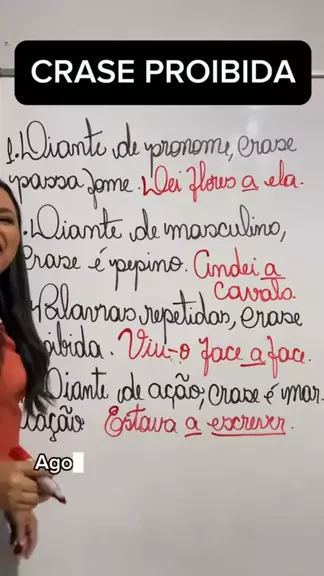 CRASE PROIBIDA
1. Diante de pronome, crase
passa fome. Dei flores a ela.
. Diante de masculino,
crase é pepino. Andei a
cavalo.
Palavras repetidas, crase
oibida. Viu-o face a face.
Diante de ação, crase é mar-
cação Estava a escrever.
Ago